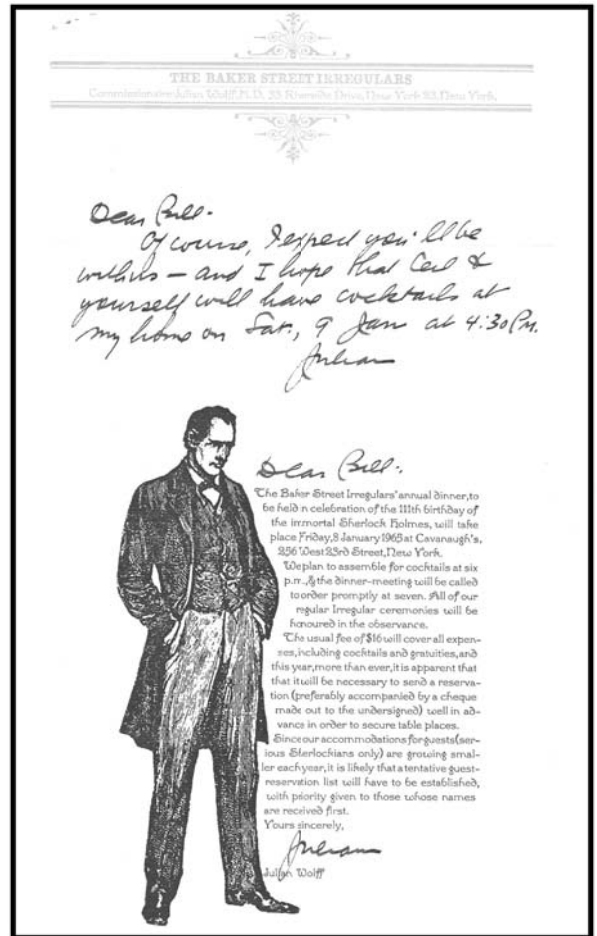 THE BAKER STREET IRREGULARS
Commissionaire: Julian Wolff, M. D., 33 Riverside Drive, New York 23, New York.
Dear Bill-
Of course, I expect you'll be
with us - and I hope that Ceil &
yourself will have cocktails at
my home on Sat., 9 Jan at 4:30 P.M.
Julian
Dear Bill:
The Baker Street Irregulars' annual dinner, to
be held n celebration of the 111th birthday of
the immortal Sherlock Holmes, will take
place Friday, 8 January 1965 at Cavanaugh's,
256 West 23rd Street, New York.
We plan to assemble for cocktails at six
p.m., & the dinner-meeting will be called
to order promptly at seven. All of our
regular Irregular ceremonies will be
honoured in the observance.
The usual fee of $16 will cover all expen-
ses, including cocktails and gratuities, and
this year, more than ever, it is apparent that
that it will be necessary to send a reserva-
tion (preferably accompanied by a cheque
made out to the undersigned) well in ad-
vance in order to secure table places.
Since our accommodations for guests (ser-
ious Sherlockians only) are growing smal-
ler each year, it is likely that a tentative guest-
reservation list will have to be established,
with priority given to those whose names
are received first.
Yours sincerely,
Julian
Julian Wolff